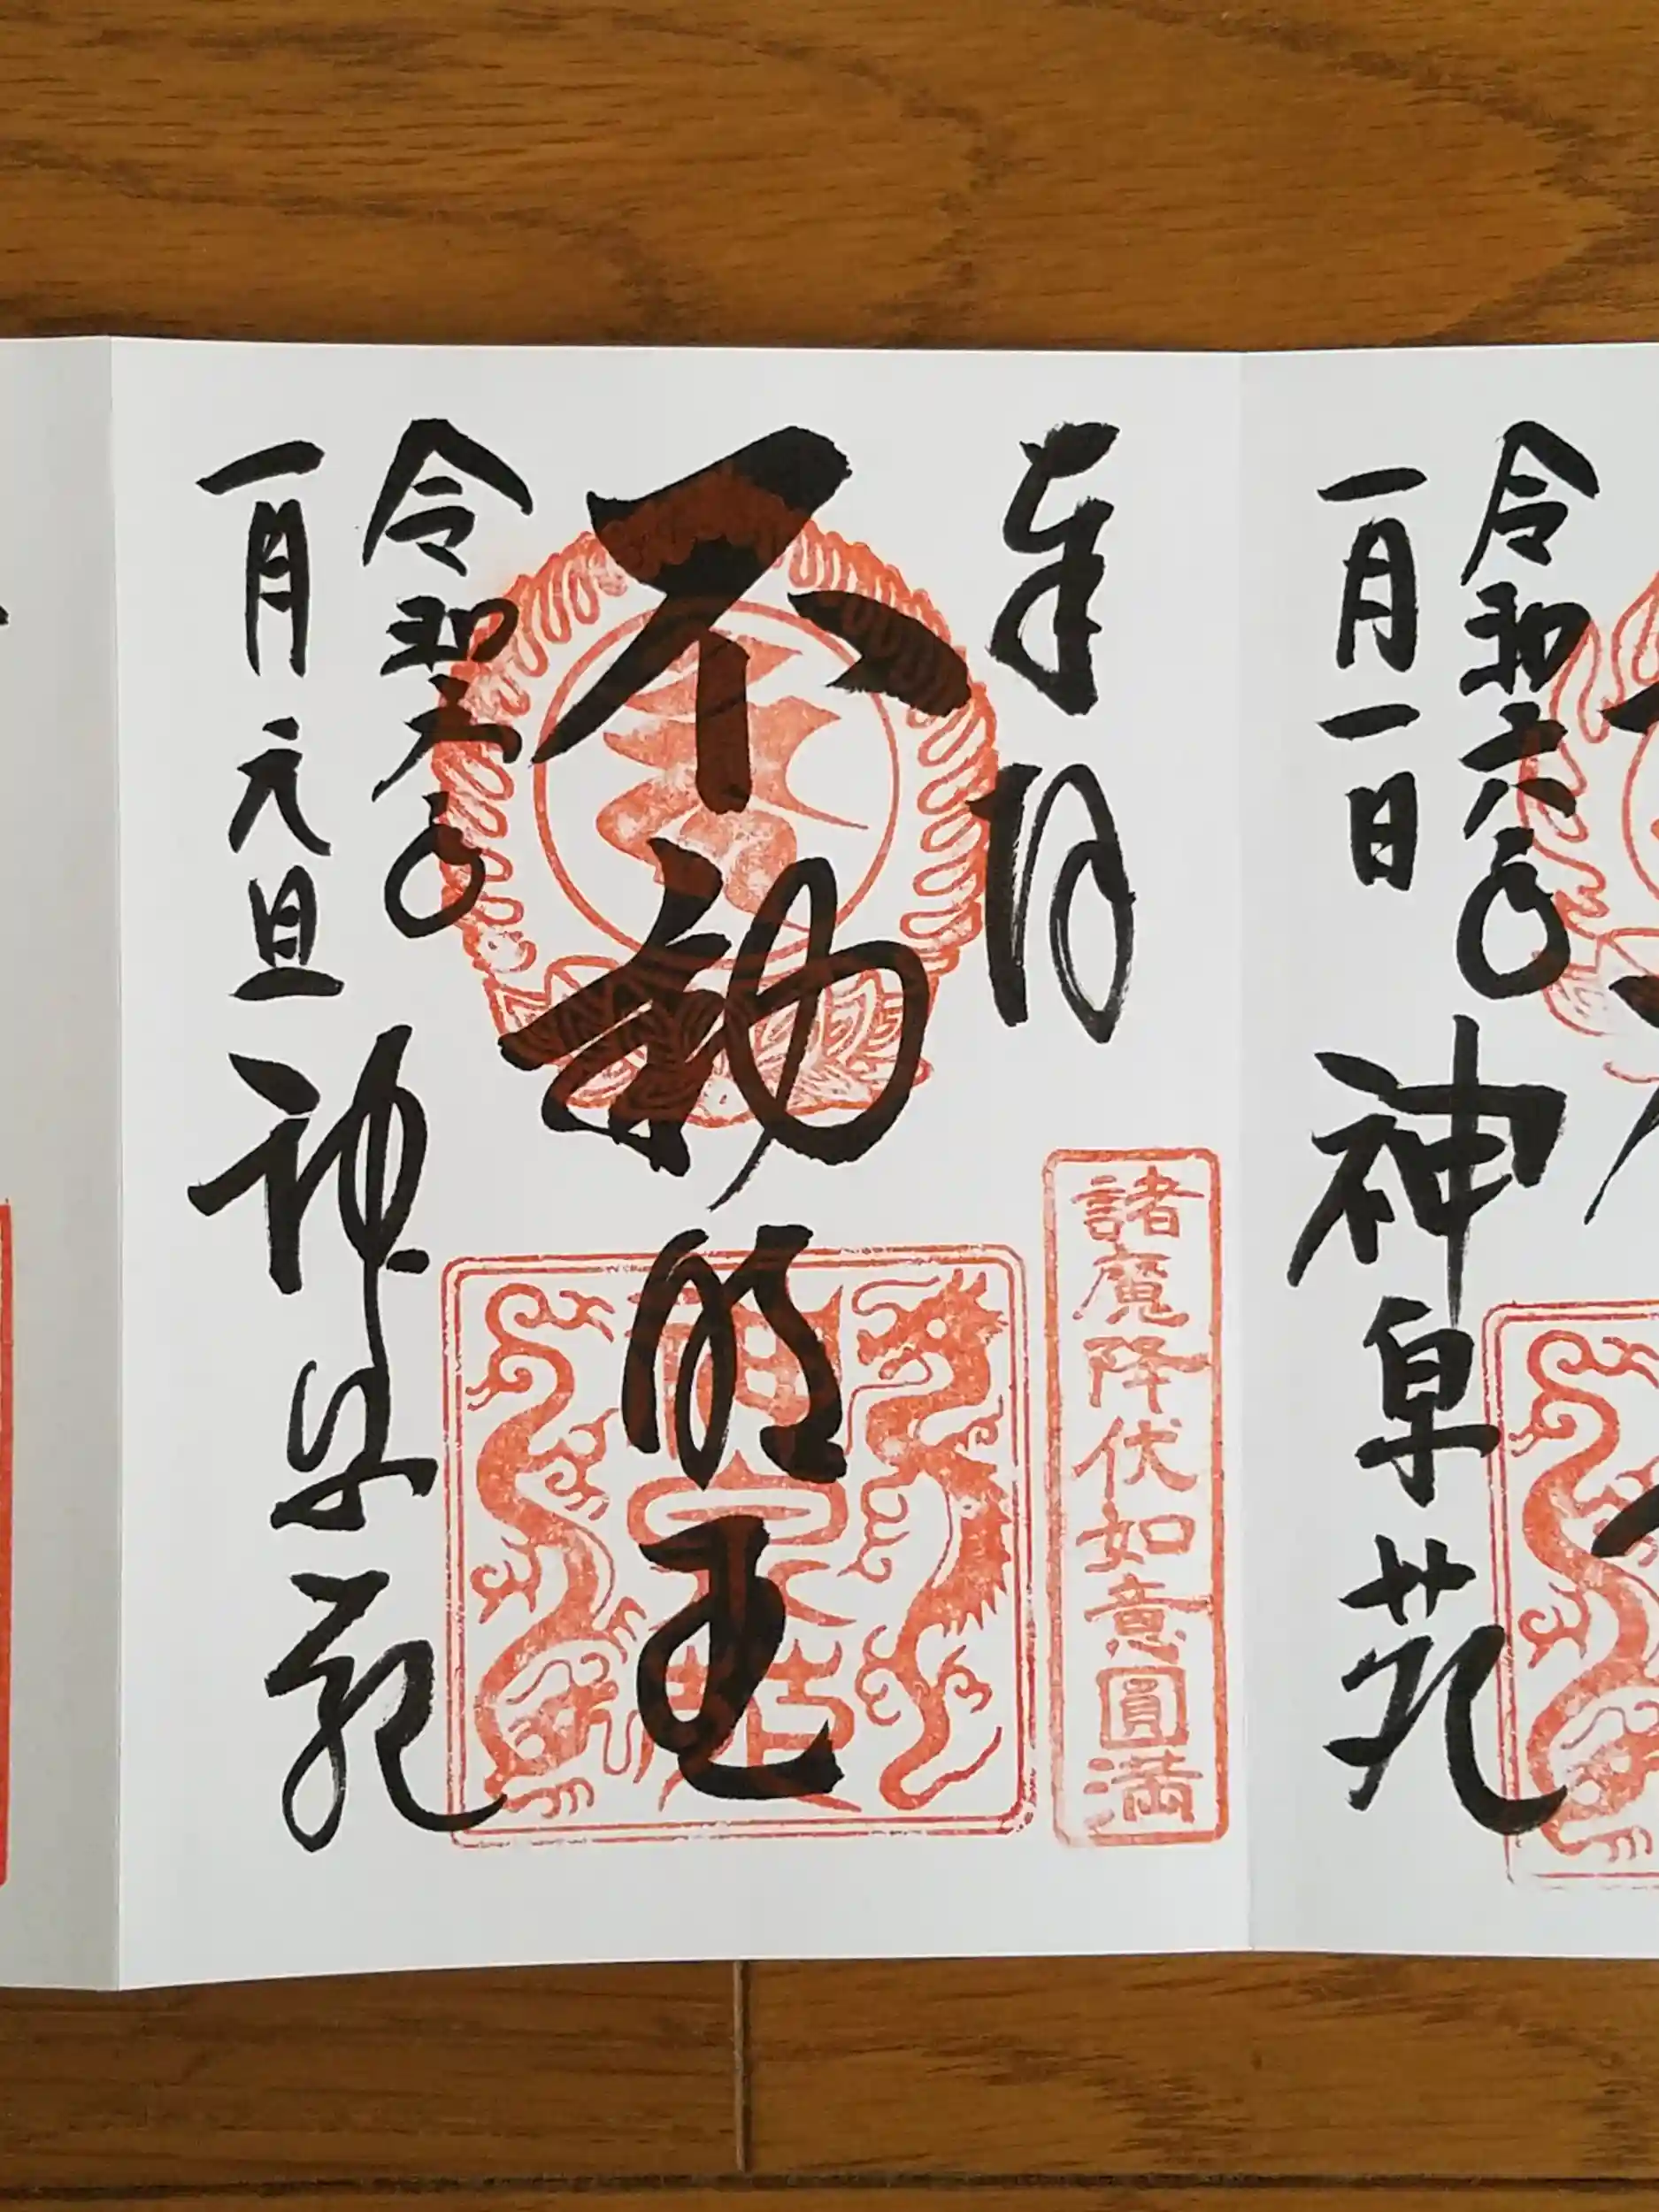 令和六年
一月一日
神泉苑
奉拝
諸魔降伏如意圓満
不動明王
令和六年
一月元旦
神泉苑